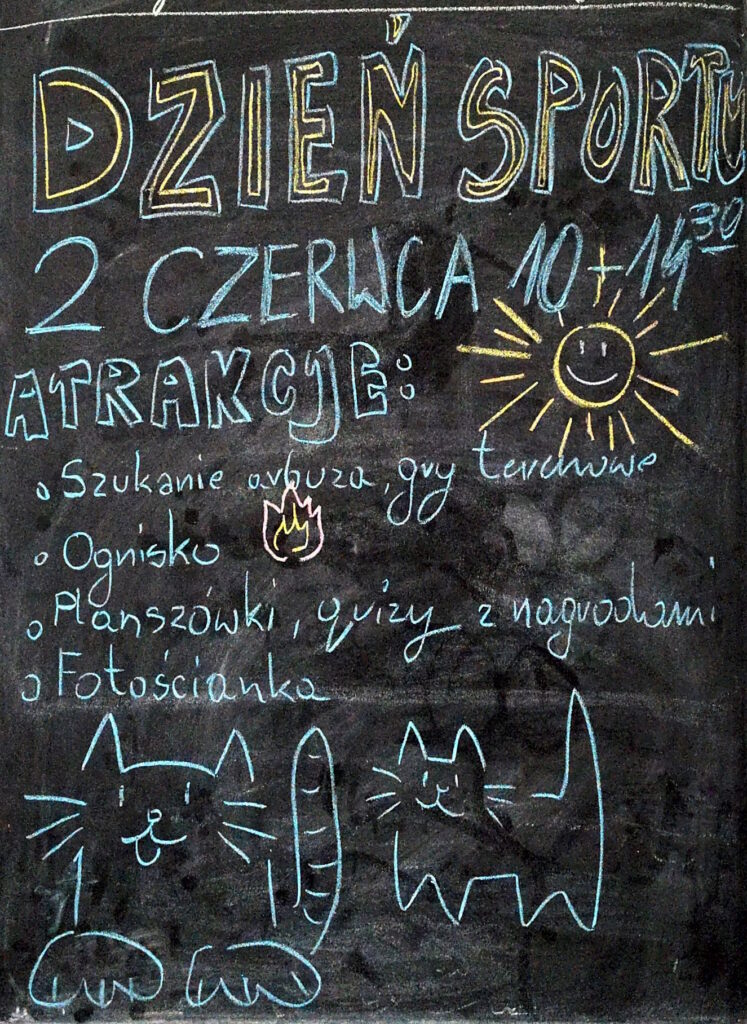 DZIEŃ SPORTU
2 CZERWCA 10÷14³⁰
ATRAKCJE:
o Szukanie arbuza, gry terenowe
o Ognisko
o Planszówki, quizy z nagrodami
o Fotościanka